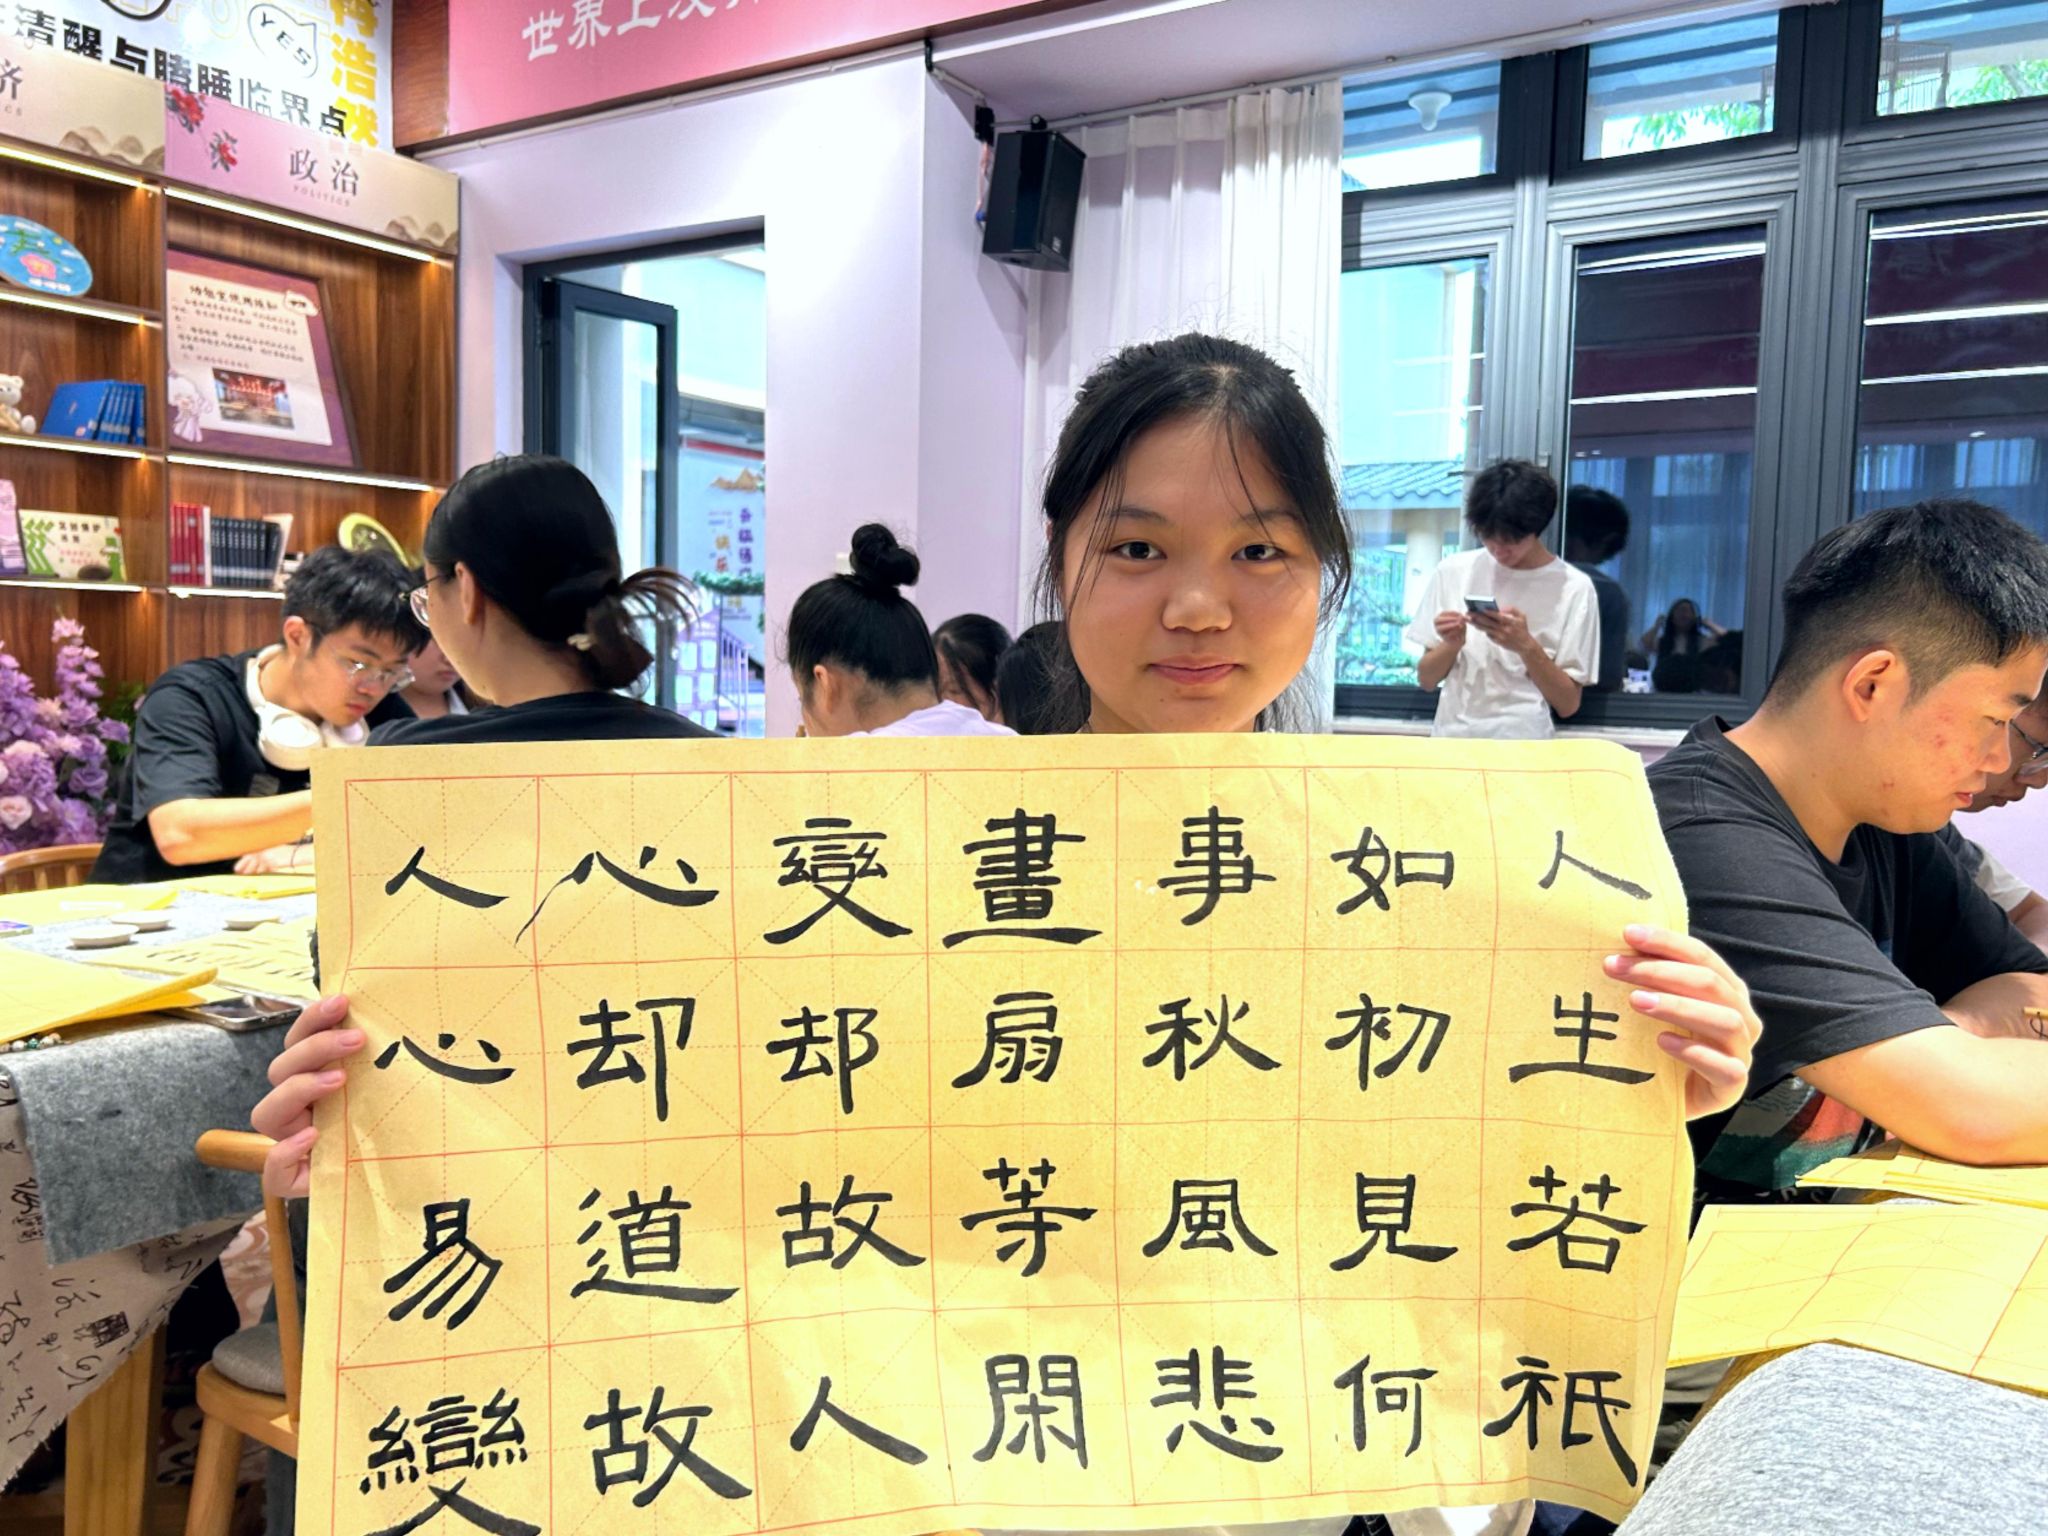 清醒与瞌睡临界点
YES
浩然
世界上
济
政治
POLITICS
人生若祇
如初見何
事秋風悲
畫扇等閑
變却故人
心却道故
人心易變